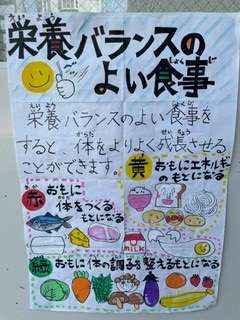 栄養バランスの
よい食事
栄養バランスのよい食事を
すると、体をよりよく成長させる
ことができます。
黄 おもにエネルギー
のもとになる
赤 おもに
体をつくる
もとになる
MILK
緑 おもに体の調子を整えるもとになる